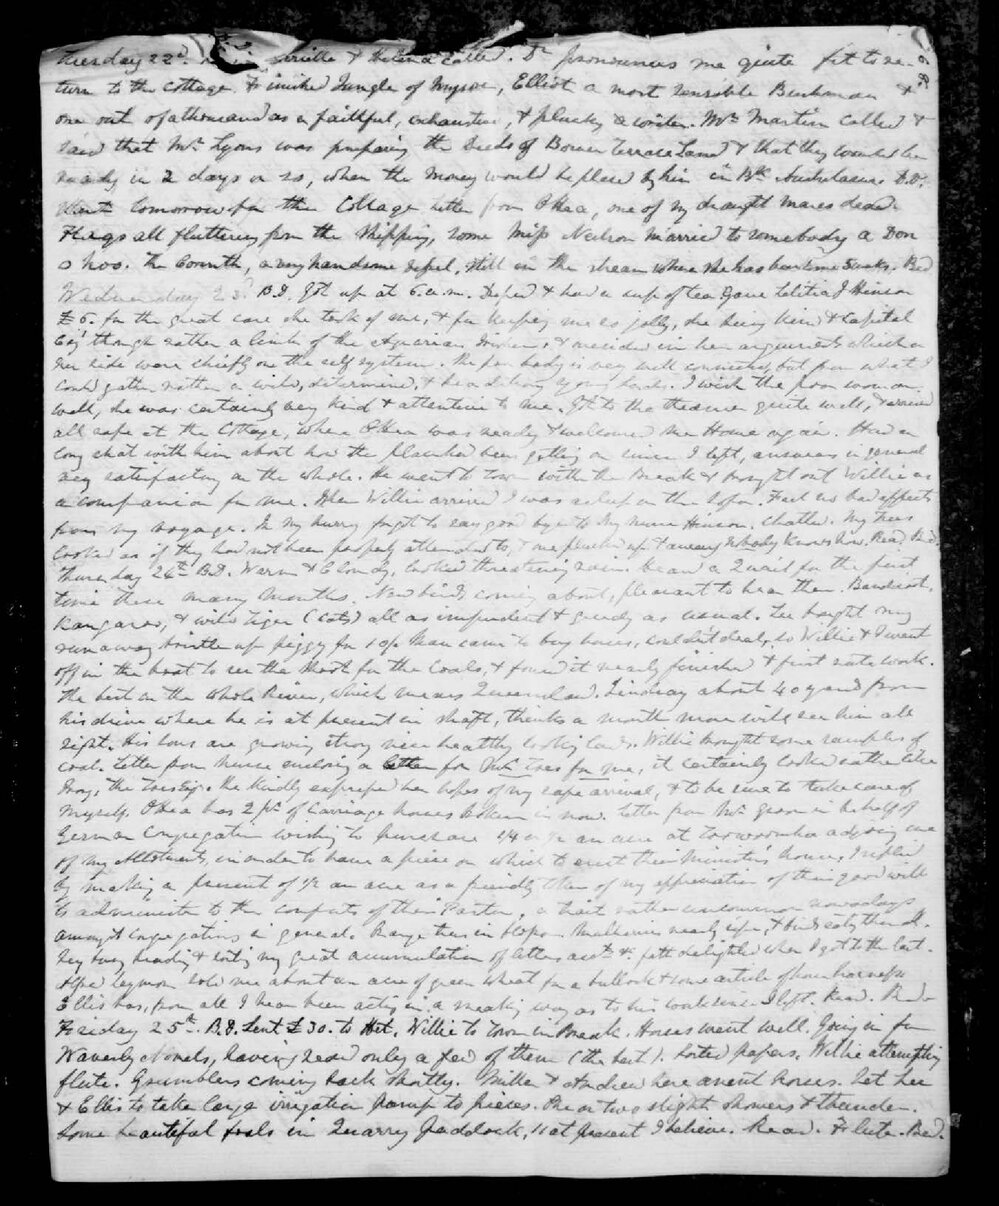 Tuesday 22d. & Helena called. Dr pronounces me quite fit to re-
turn to the Cottage. Finished Jungle of Mysore, Elliot a most sensible Bushman &
one out of a thousand as a faithful, exhaustive, & plucky a writer. Mr Martin called &
said that Mr Lyons was preparing the Deeds of Bowen Terrace Land & that they would be
ready in 2 days or so, when the money would be placed by him in Bk Australasia. B.D.
tomorrow for the Cottage. Letter from O'Rea, one of my draught mares dead.
Flags all fluttering from the Shipping, some Miss Neilson married to somebody a Don
o hoo. The Corinth, a very handsome vessel, still in the stream where she has been some 5 weeks. Bed
Wednesday 23d B.D. Got up at 6 a.m. Dressed & had a cup of tea. Gave Letitia J Hinson
£6. for the great care she took of me, & for keeping me so jolly, she being kind & Capital
Co; though rather a limb of the Aquarian order, & decided in her arguments which on
her side were chiefly on the self system. The poor body is very well connected, but from what I
could gather rather a wild, determined, & headstrong young hands. I wish the poor woman
well, she was certainly very kind & attentive to me. Got to the steamer quite well, & arrived
all safe at the Cottage, where O'Rea was ready & welcomed me Home again. Had a
long chat with him about how the place had been getting on since I left, answers in general
very satisfactory on the whole. He went to town with the Break & brought out Willie as
a companion for me. When Willie arrived I was asleep on the sofa. Feel no bad effects
from my voyage. In my hurry forgot to say good bye to My nurse Hinson. Chatted. My Trees
looked as if they had not been properly attended to, & one plucked up & away Nobody knows how. Read. Bed.
Thursday 24th B.D. Warm & Cloudy, looked threatening rain. Heard a Quail for the first
time these many months. New birds coming about, pleasant to hear them. Bandicoot,
Kangaroo, & wild Tiger (Cats) all as impudent & greedy as usual. Lee bought my
runaway bristle up piggy for 10/- Man came to buy horses, couldn't deal, so Willie & I went
off in the boat to see the Shoot for the Coals, & found it nearly finished & first rate work.
The best on the whole River, which means Queensland. Lindsay about 40 yards from
his drive where he is at present in shaft, thinks a month more will see him all
right. His boys are growing strong nice healthy looking lads. Willie brought some samples of
coal. Letter from nurse enclosing a letter for Mr for me, it certainly looked rather like
. She kindly expressed her hopes of my safe arrival, & to be sure to take care of
myself. O'Rea has 2 pr of Carriage horses broken in now. Letter from Mr in behalf of
German Congregation wishing to purchase 1/4 or 1/2 an acre at Toowoomba adjoining one
of my Allotments, in order to have a piece on which to erect their Minister's house, I replied
by making a present of 1/2 an acre as a friendly token of my appreciation of their good will
to administer to the comforts of their Pastor, a trait rather uncommon nowadays
amongst congregations in general. Orange trees in blossom. Mulberries nearly ripe, & birds eat them all.
Very busy reading & sorting my great accumulation of letters acct & & felt delighted when I got to the last.
Haymon sold me about an acre of green wheat for a bullock & some article of horse harness.
Ellis has, from all I hear been acting in a sneaky way as to his work since I left. Read. Bed.
Friday 25th. B.D. Sent £30. to Het. Willie to town in Break. Horses went well. Going in for
Waverly Novels, having read only a few of them (the best). Sorted papers. Willie attempting
flute. Grumblers coming back shortly. Miller & Andrew here anent horses. Set Lee
& Ellis to take large irrigation pump to pieces. One or two slight showers & thunder.
Some beautiful foals in Quarry paddock, 11 at present I believe. Read. Flute. Bed.